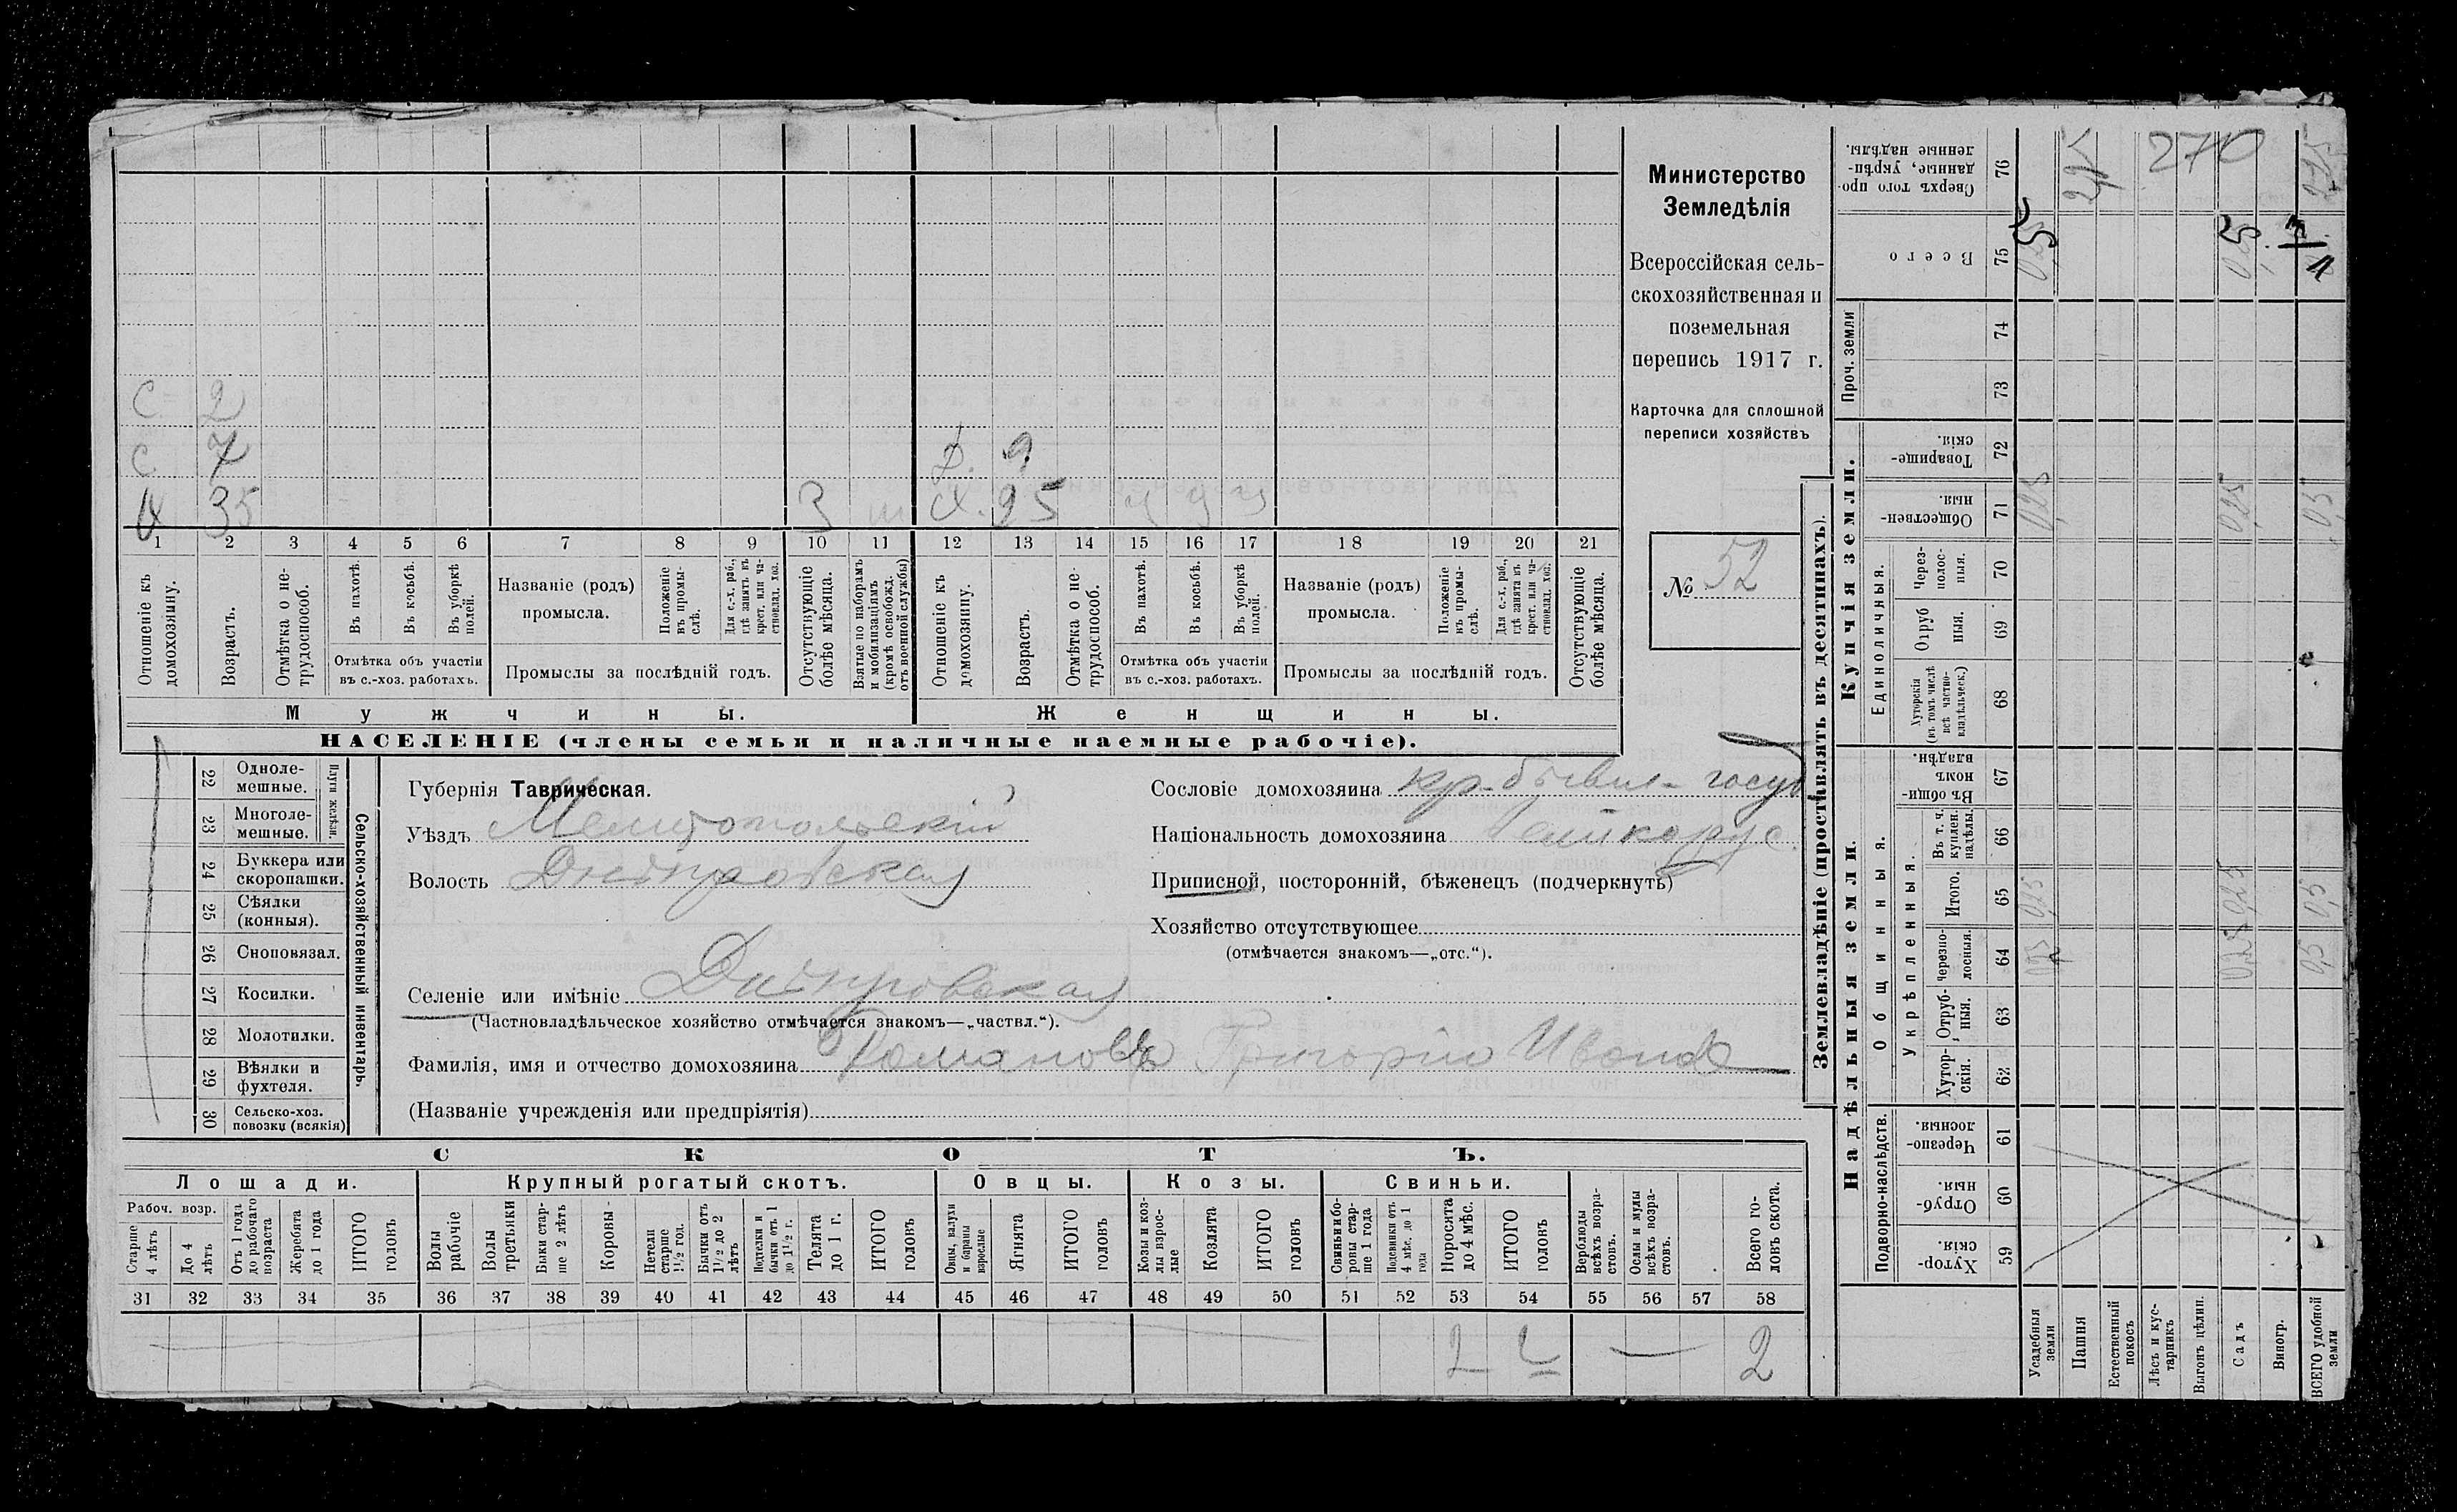 С 2
С. 7 Д. 9
Х 35 З Х. 35 ч 9 ч
1 2 3 4 5 6 7 8 9 10 11 12 13 14 15 16 17 18 19 20 21
Отношеніе къ домохозяину.
Возрастъ.
Отмѣтка о не-трудоспособ.
Въ пахотѣ.
Въ косьбѣ.
Въ уборкѣ полей.
Отмѣтка объ участіи
въ с.-хоз. работахъ.
Названіе (родъ)
промысла.
Положеніе въ промы-слѣ.
Для с.-х. раб., гдѣ занятъ въ крест. или ча-стновлад. хоз.
Промыслы за послѣдній годъ.
Отсутствующіе болѣе мѣсяца.
Взятые по наборамъ и мобилизаціямъ (кромѣ освобожд. отъ военной службы)
Отношеніе къ домохозяину.
Возрастъ.
Отмѣтка о не-трудоспособ.
Въ пахотѣ.
Въ косьбѣ.
Въ уборкѣ полей.
Отмѣтка объ участіи
въ с.-хоз. работахъ.
Названіе (родъ)
промысла.
Положеніе въ промы-слѣ.
Для с.-х. раб., гдѣ занята въ крест. или ча-стновлад. хоз.
Промыслы за послѣдній годъ.
Отсутствующіе болѣе мѣсяца.
Мужчины.
Женщины.
НАСЕЛЕНІЕ (члены семьи и наличные наемные рабочіе).
Министерство
Земледѣлія
Всероссійская сель-
скохозяйственная и
поземельная
перепись 1917 г.
Карточка для сплошной
переписи хозяйствъ
№ 52
Сельско-хозяйственный инвентарь.
Плуги желѣзн.
22 Одноле-мешные.
23 Многоле-мешные.
24 Буккера или скоропашки.
25 Сѣялки (конныя).
26 Сноповязал.
27 Косилки.
28 Молотилки.
29 Вѣялки и фухтеля.
30 Сельско-хоз. повозки (всякія)
Губернія Таврическая.
Уѣздъ Мелитопольскій
Волость Днѣпровская
Селеніе или имѣніе Днѣпровская
(Частновладѣльческое хозяйство отмѣчается знакомъ—„частвл.“).
Фамилія, имя и отчество домохозяина Романовъ Григорій Иванов
(Названіе учрежденія или предпріятія)
Сословіе домохозяина кр. бывш. госуд
Національность домохозяина великорус.
Приписной, посторонній, бѣженецъ (подчеркнуть)
Хозяйство отсутствующее
(отмѣчается знакомъ—„отс.“).
СКОТЪ.
Лошади.
Крупный рогатый скотъ.
Овцы.
Козы.
Свиньи.
Рабоч. возр.
Старше 4 лѣтъ
До 4 лѣтъ
Отъ 1 года до рабочаго возраста
Жеребята до 1 года
ИТОГО головъ
Волы рабочіе
Волы третьяки
Быки стар-ше 2 лѣтъ
Коровы
Нетели старше 1½ год.
Бычки отъ 1½ до 2 лѣтъ
Подтелки и бычки отъ 1 до 1½ г.
Телята до 1 г.
ИТОГО головъ
Овцы, валухи и бараны взрослые
Ягнята
ИТОГО головъ
Козы и коз-лы взрос-лые
Козлята
ИТОГО головъ
Свиньи и бо-ровы стар-ше 1 года
Подсвинки отъ 4 мѣс. до 1 года
Поросята до 4 мѣс.
ИТОГО головъ
Верблюды всѣхъ возра-стовъ.
Ослы и мулы всѣхъ возра-стовъ.
Всего го-ловъ скота.
31 32 33 34 35 36 37 38 39 40 41 42 43 44 45 46 47 48 49 50 51 52 53 54 55 56 57 58
2 2 — 2
Землевладѣніе (проставлять въ десятинахъ).
Сверхъ того про-данные, укрѣп-ленные надѣлы. 76
270
Всего 75
Проч. земли
74
73
Купчія земли.
Товарище-скія. 72
Обществен-ныя. 71 0,25 0,25 0,5
Единоличныя.
Через-полос-ныя. 70
Отруб ныя. 69
Хуторскія (въ томъ числѣ всѣ частно-владѣльческ.) 68
Надѣльныя земли.
Общинныя.
Въ общи-номъ владѣн. 67
Укрѣпленныя.
Въ т. ч. куплен. надѣлы. 66
Итого. 65 0,25 0,25 0,5
Черезпо-лосныя. 64 0,25 0,25 0,5
Отруб-ныя. 63
Хутор-скія. 62
Подворно-наслѣдств.
Черезпо-лосныя. 61
Отруб-ныя. 60
Хутор-скія. 59
Усадебныя земли
Пашня
Естественный покосъ
Лѣсъ и кус-тарникъ
Выгонъ цѣлин.
Садъ
Виногр.
ВСЕГО удобной земли